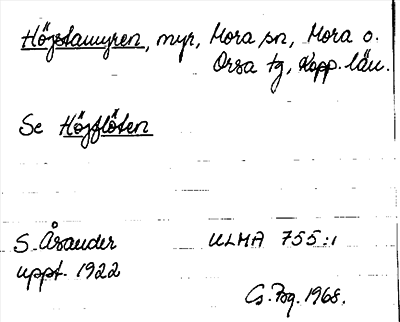 Höjstamyren, myr, Mora sn, Mora o.
Orsa tg, Kopp. län.
Se Höjflöten
S. Åsander
uppt. 1922
ULMA 755:1
1968.